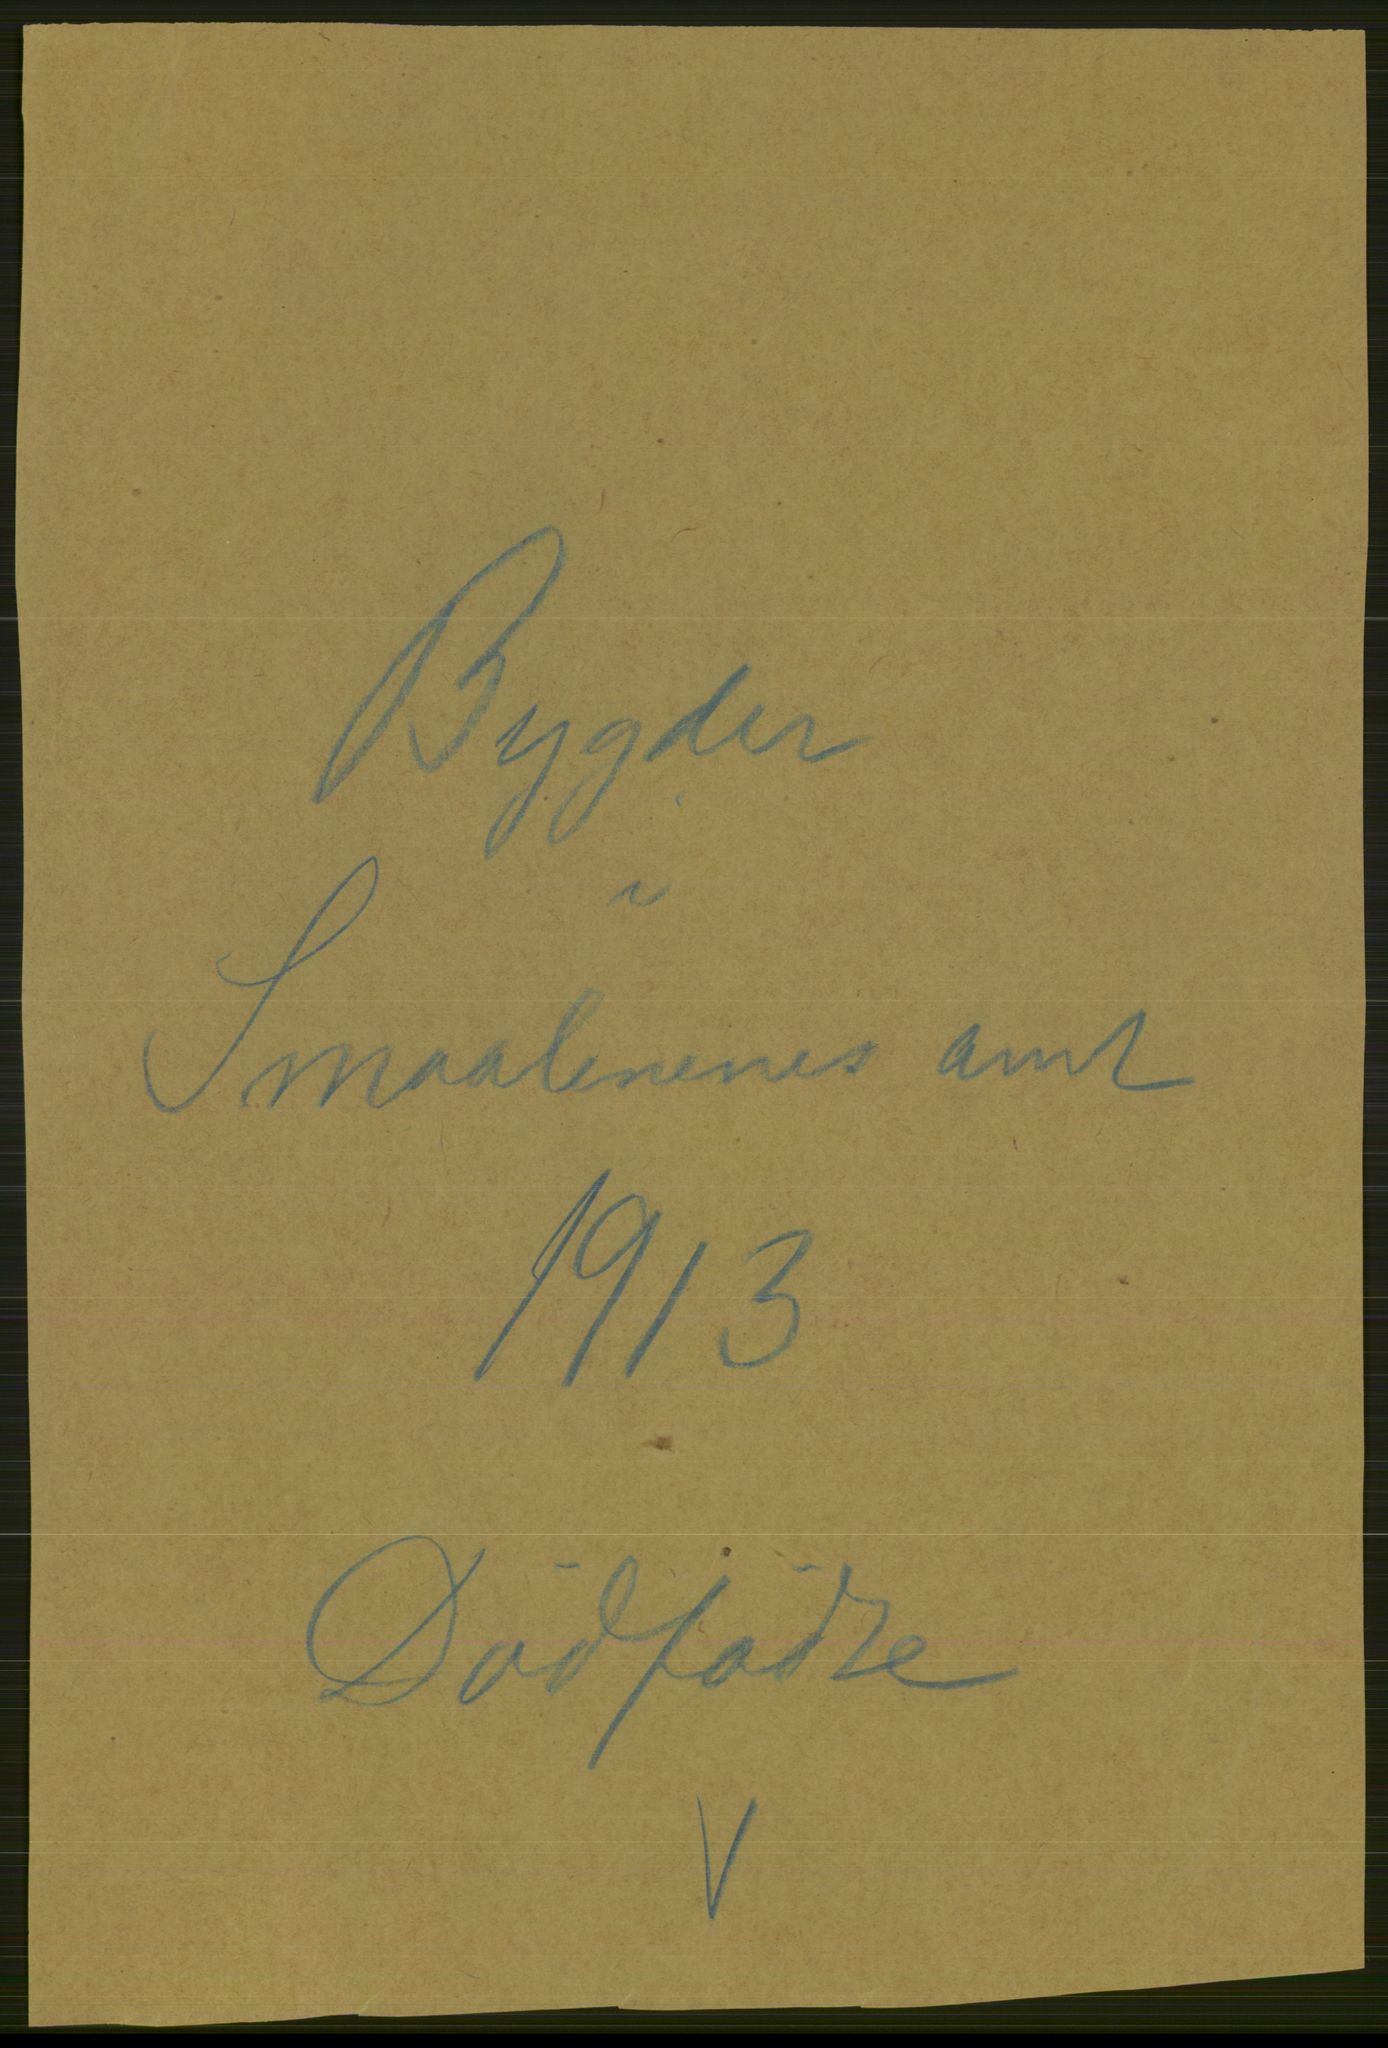 Bygder
i
Smaalenenes amt
1913
Dödfödte
V